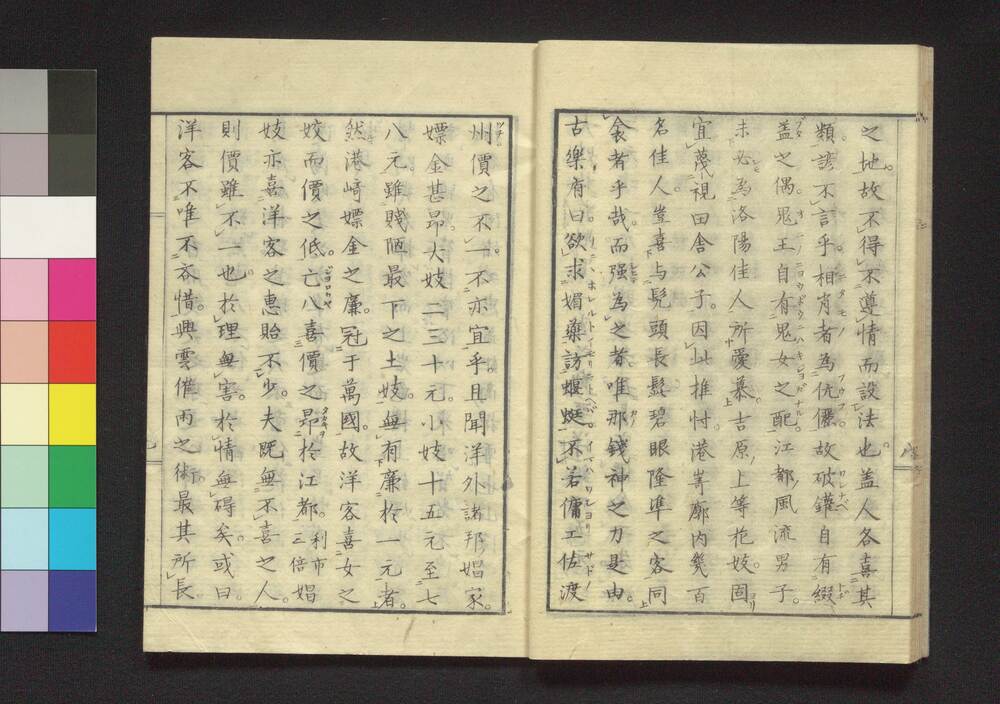 之地。故不得不遵情而設法也。盖人各喜其
類。諺不言乎。相肖者為伉儷。故破鑵自有綴
盖之偶。鬼王自有鬼女之配。江都風流男子。
未必為洛陽佳人所愛慕。吉原上等花妓。固
宜蔑視田舎公子。因此推忖。港嵜廓内幾百
名佳人。豈喜与髡頭長髭碧眼隆準之客同
衾者乎哉。而强為之者。唯那錢神之力是由。
古樂府曰。欲求媚藥訪蝘蜓。不若傭工佐渡
州。價之不一。不亦宜乎。且聞洋外諸邦娼家。
嫖金甚昂。大妓二三十元。小妓十五元。至七
八元。雖賤陋最下之土妓。無有廉於一元者。
然港崎嫖金之廉。冠于萬國。故洋客喜女之
姣而價之低。亡八喜價之昂於江都。利市三倍娼
妓亦喜洋客之惠貽不少。夫既無不喜之人。
則價雖不一也。於理無害。於情無碍矣。或曰。
洋客不唯不吝惜。興雲催雨之術。最其所長